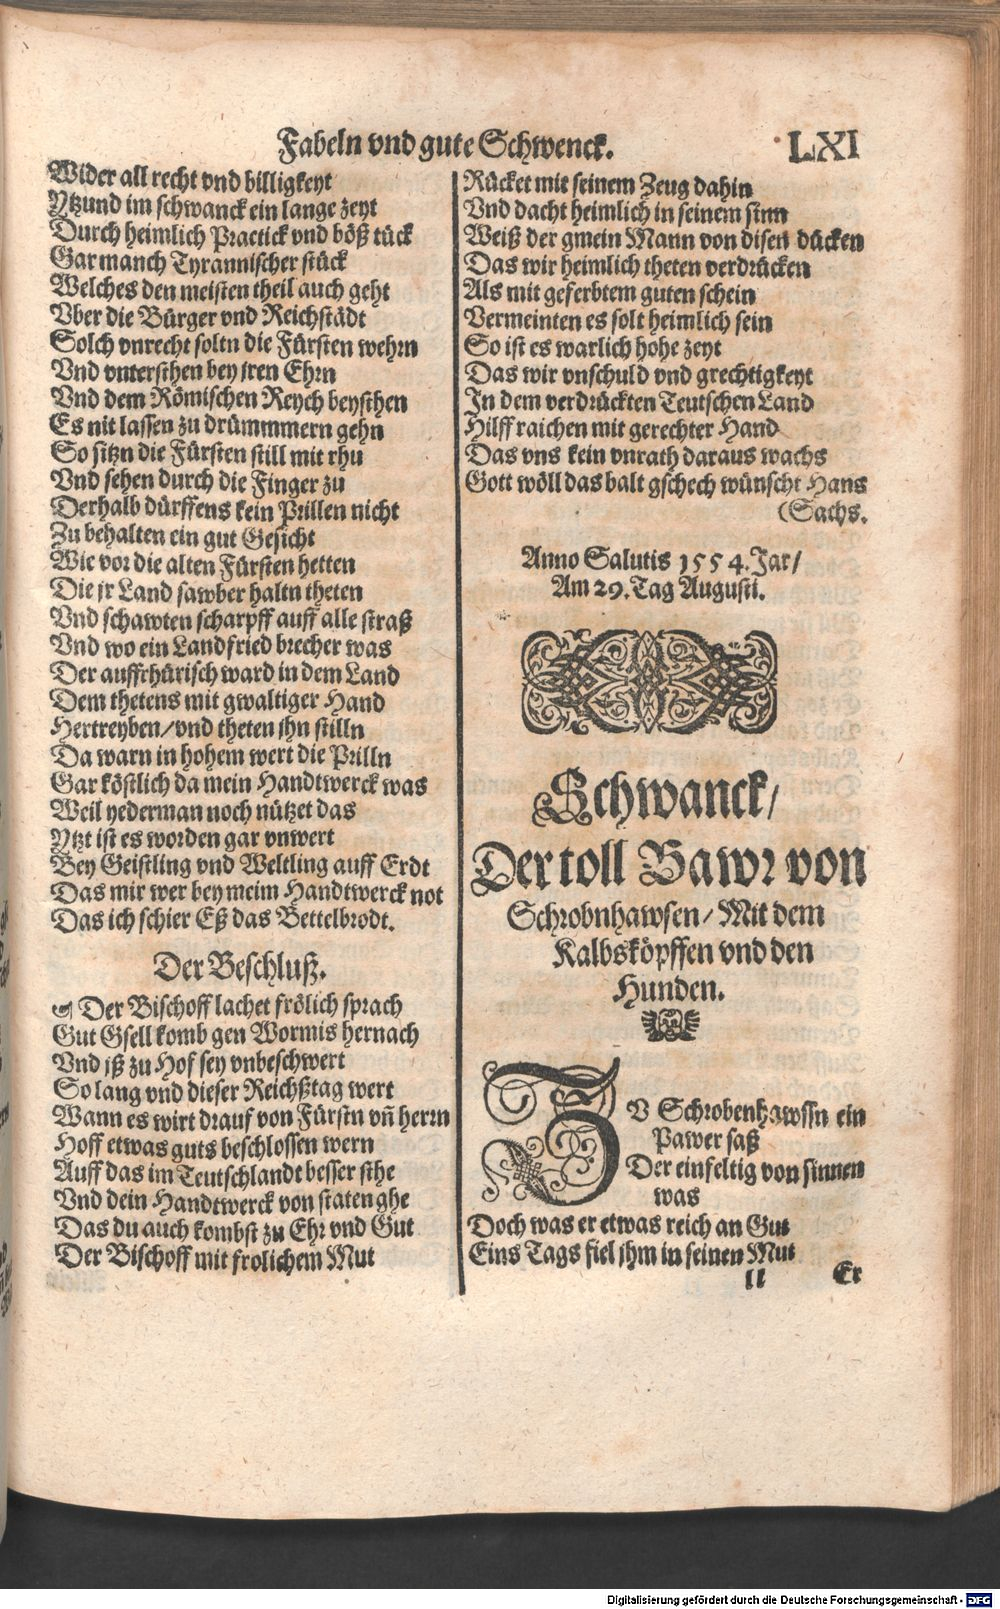 Fabeln vnd gute Schwenck. LXI
Wider all recht vnd billigkeyt
Ytzund im schwanck ein lange zeyt
Durch heimlich Practick vnd böß tück
Gar manch Tyrannischer stück
Welches den meisten theil auch geht
Vber die Bürger vnd Reichstädt
Solch vnrecht soltn die Fürsten wehrn
Vnd vntersthen bey jren Ehrn
Vnd dem Römischen Reych beysthen
Es nit lassen zu drümmmern gehn
So sitzn die Fürsten still mit rhu
Vnd sehen durch die Finger zu
Derhalb dürffens kein Prillen nicht
Zu behalten ein gut Gesicht
Wie vor die alten Fürsten hetten
Die jr Land sawber haltn theten
Vnd schawten scharpff auff alle straß
Vnd wo ein Landfried brecher was
Der auffrhürisch ward in dem Land
Dem thetens mit gwaltiger Hand
Hertreyben/vnd theten ihn stilln
Da warn in hohem wert die Prilln
Gar köstlich da mein Handtwerck was
Weil yederman noch nützet das
Ytzt ist es worden gar vnwert
Bey Geistling vnd Weltling auff Erdt
Das mir wer bey meim Handtwerck not
Das ich schier Eß das Bettelbrodt.
Der Beschluß.
Der Bischoff lachet frölich sprach
Gut Gsell komb gen Wormis hernach
Vnd iß zu Hof sey vnbeschwert
So lang vnd dieser Reichßtag wert
Wann es wirt drauf von Fürstn vñ herrn
Hoff etwas guts beschlossen wern
Auff das im Teutschlandt besser sthe
Vnd dein Handtwerck von staten ghe
Das du auch kombst zu Ehr vnd Gut
Der Bischoff mit frolichem Mut
Rücket mit seinem Zeug dahin
Vnd dacht heimlich in seinem sinn
Weiß der gmein Mann von disen dücken
Das wir heimlich theten verdrücken
Als mit geferbtem guten schein
Vermeinten es solt heimlich sein
So ist es warlich hohe zeyt
Das wir vnschuld vnd grechtigkeyt
In dem verdrückten Teutschen Land
Hilff raichen mit gerechter Hand
Das vns kein vnrath daraus wachs
Gott wöll das balt gschech wünscht Hans
(Sachs.
Anno Salutis 1554. Jar/
Am 29. Tag Augusti.
Schwanck/
Der toll Bawr von
Schrobnhawsen/ Mit dem
Kalbsköpffen vnd den
Hunden.
ZV Schrobenhawssn ein
Pawer saß
Der einfeltig von sinnen
was
Doch was er etwas reich an Gut
Eins Tags fiel ihm in seinen Mut
ll Er
Digitalisierung gefördert durch die Deutsche Forschungsgemeinschaft - DFG